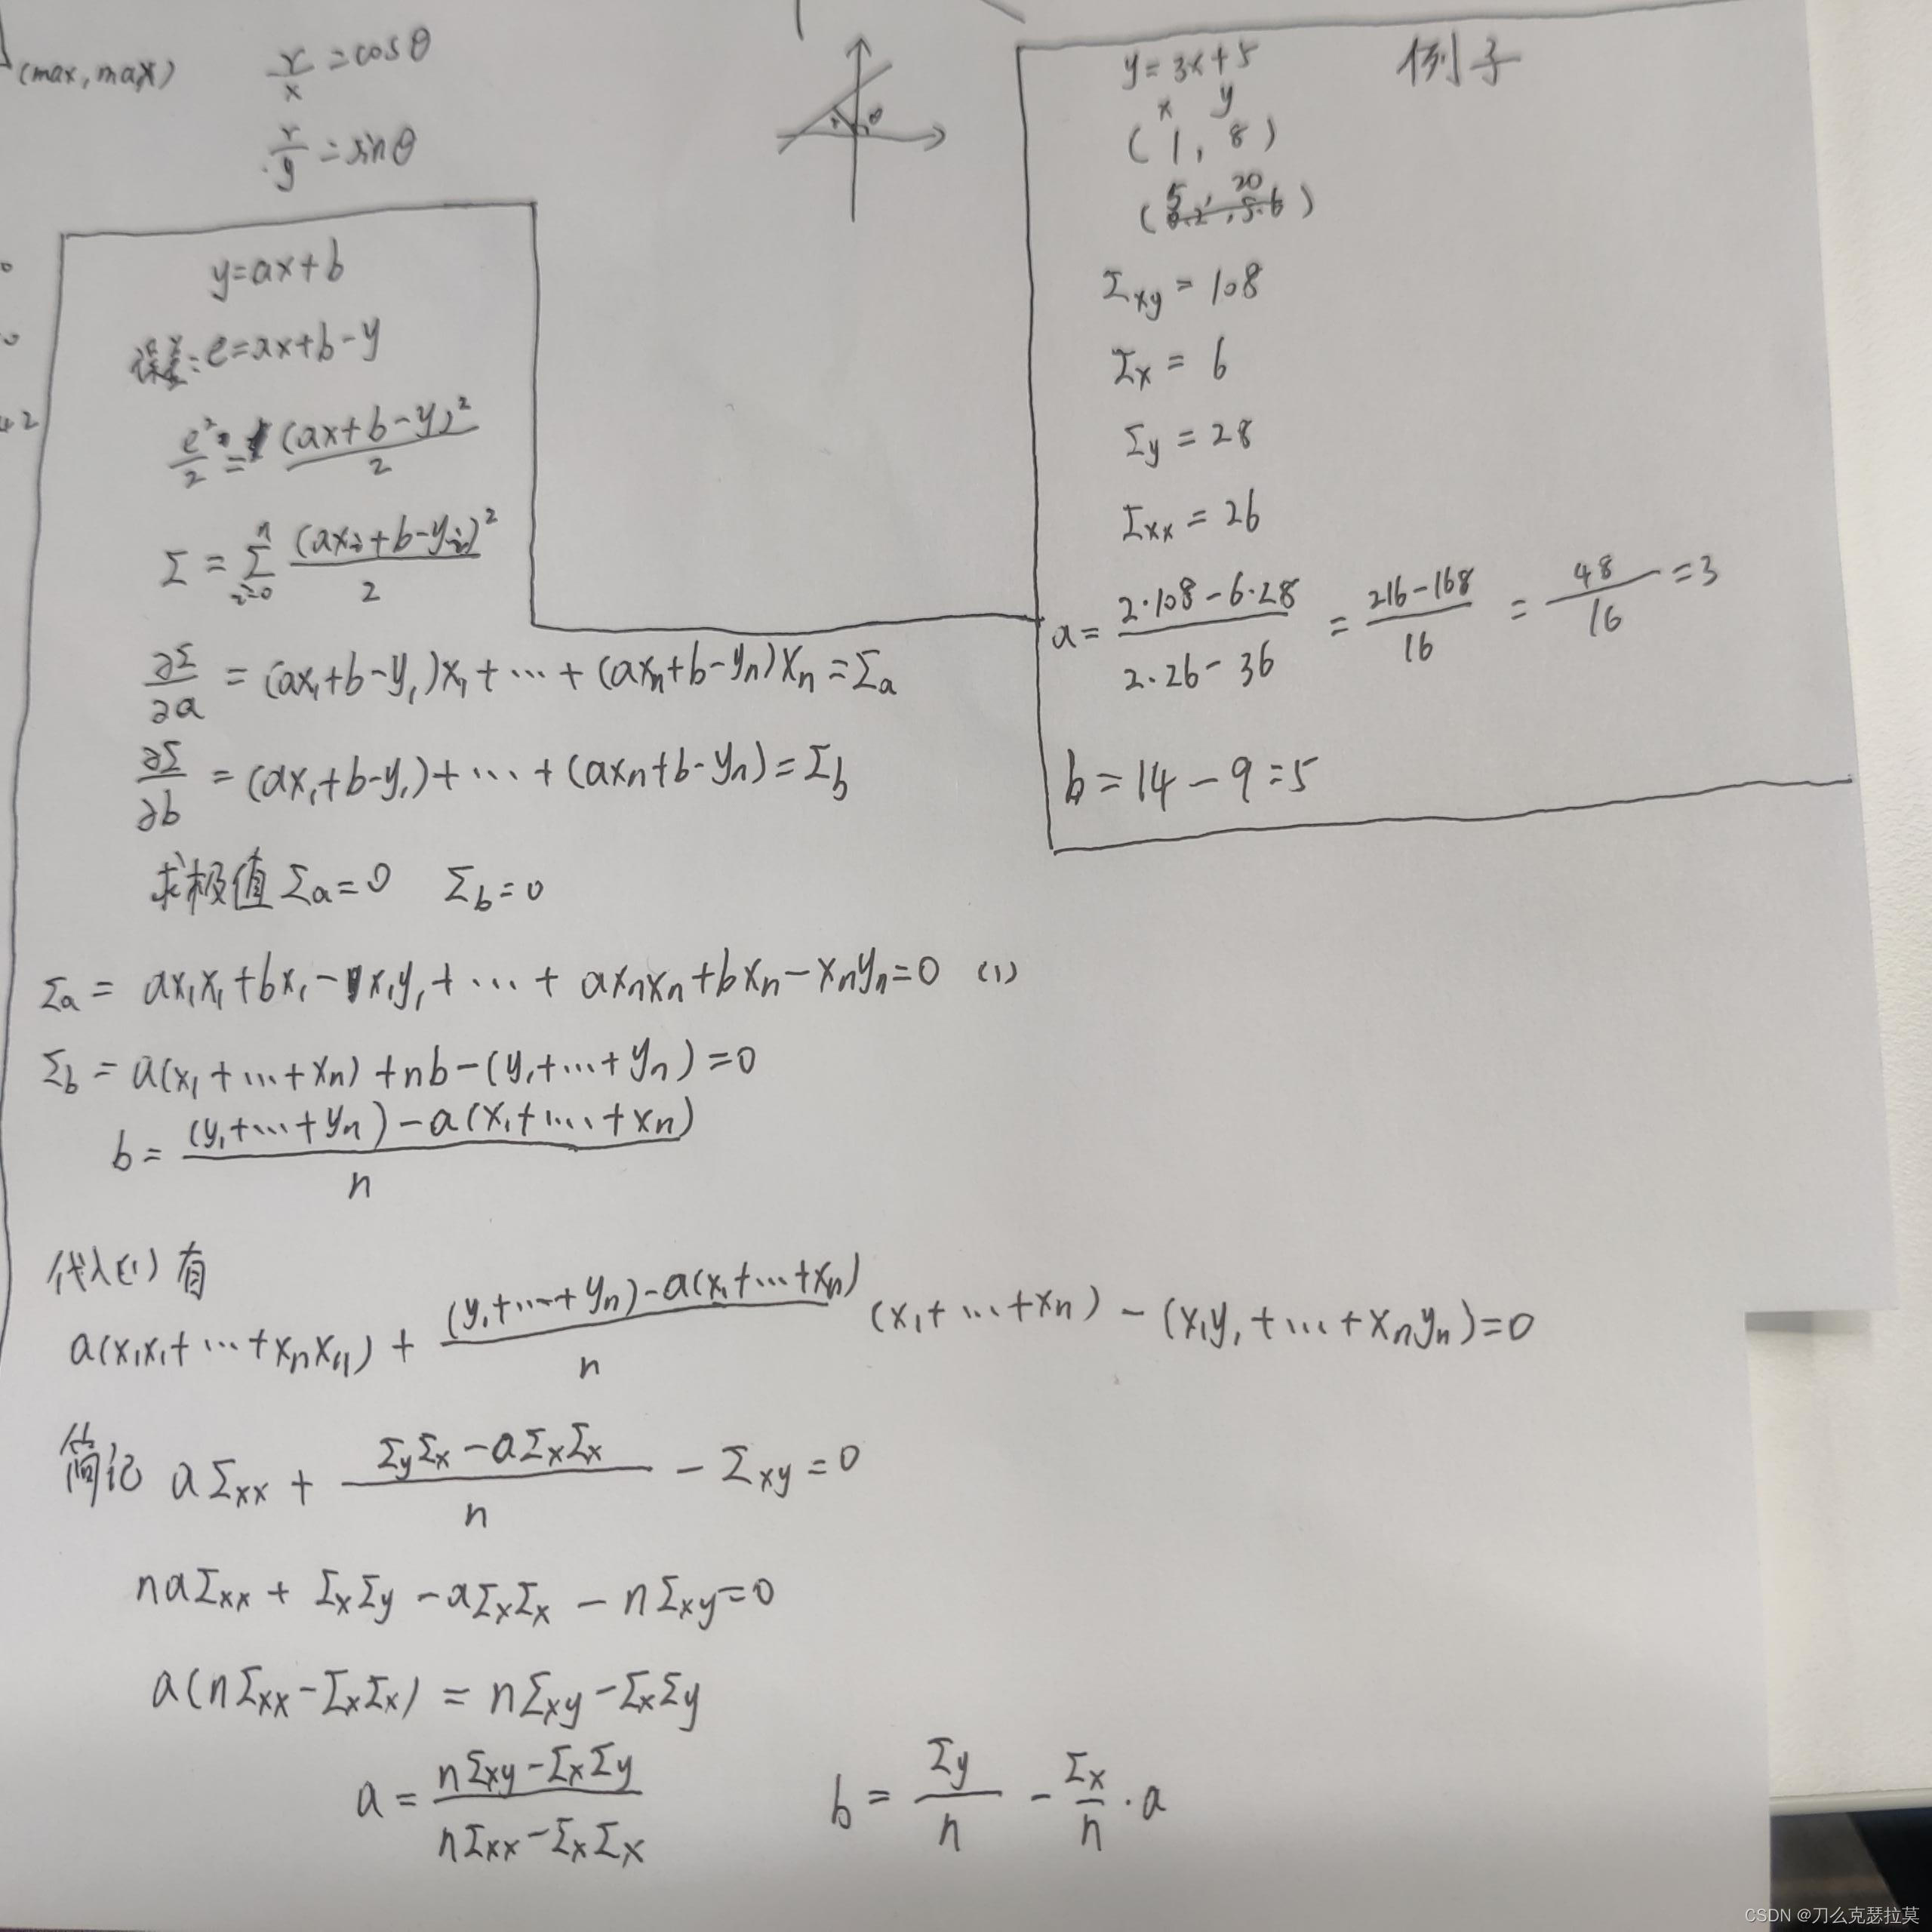 (max, max)
r/x = cosθ
r/y = sinθ
θ
y = ax + b
误差: e = ax + b - y
e²/2 = (ax + b - y)²/2
Σ = Σ_{i=0}^{n} (ax_i + b - y_i)²/2
∂Σ/∂a = (ax₁ + b - y₁)x₁ + … + (ax_n + b - y_n)x_n = Σa
∂Σ/∂b = (ax₁ + b - y₁) + … + (ax_n + b - y_n) = Σb
求极值 Σa = 0 Σb = 0
Σa = ax₁x₁ + bx₁ - x₁y₁ + … + ax_nx_n + bx_n - x_ny_n = 0 (1)
Σb = a(x₁ + … + x_n) + nb - (y₁ + … + y_n) = 0
b = ((y₁ + … + y_n) - a(x₁ + … + x_n))/n
代入(1)有
a(x₁x₁ + … + x_nx_n) + ((y₁ + … + y_n) - a(x₁ + … + x_n))/n (x₁ + … + x_n) - (x₁y₁ + … + x_ny_n) = 0
简记 aΣxx + (ΣyΣx - aΣxΣx)/n - Σxy = 0
naΣxx + ΣxΣy - aΣxΣx - nΣxy = 0
a(nΣxx - ΣxΣx) = nΣxy - ΣxΣy
a = (nΣxy - ΣxΣy)/(nΣxx - ΣxΣx) b = Σy/n - Σx/n · a
y = 3x + 5 例子
x y
(1, 8)
(5, 20)
Σxy = 108
Σx = 6
Σy = 28
Σxx = 26
a = (2·108 - 6·28)/(2·26 - 36) = (216 - 168)/16 = 48/16 = 3
b = 14 - 9 = 5
CSDN @刀么克瑟拉莫